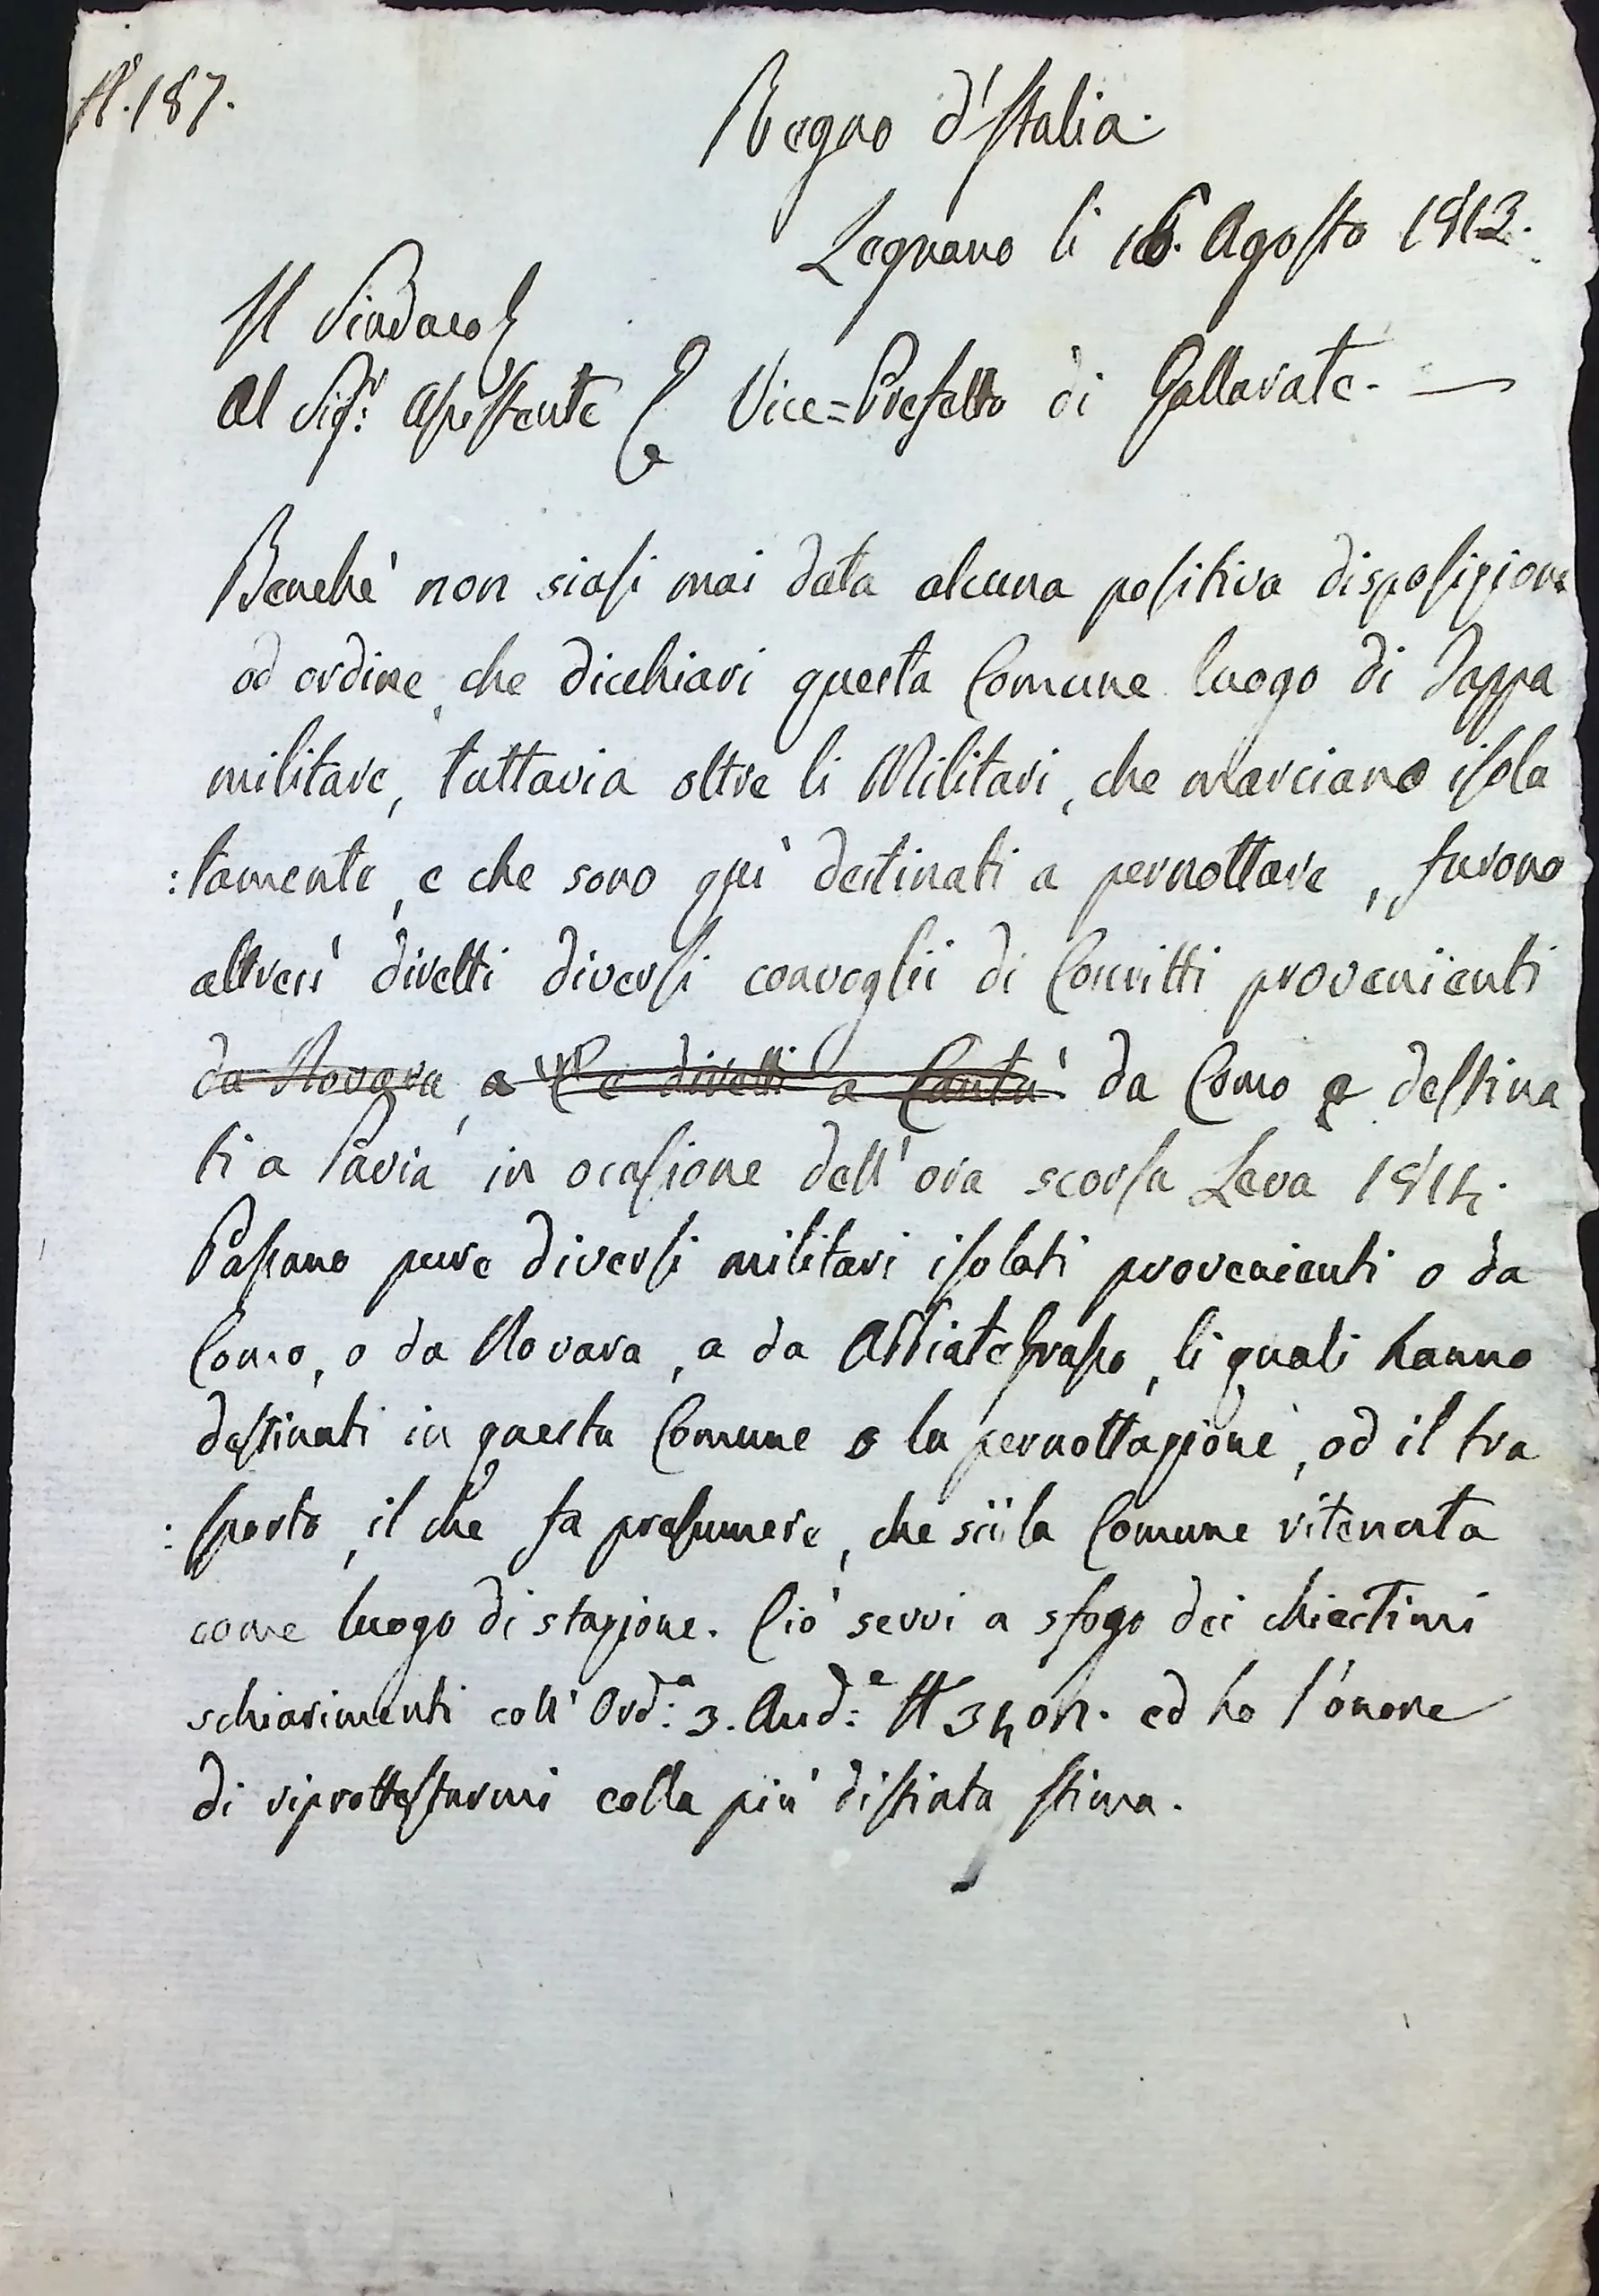 N. 187.
Regno d'Italia.
Legnano li 16. Agosto 1813.
Il Sindaco
Al Sigr: Assistente Vice=Prefetto di Gallarate.
Benchè non siasi mai data alcuna positiva disposizione
od ordine, che dicchiari questa Comune luogo di Tappa
militare, tuttavia oltre li Militari, che marciano isola
:tamente, e che sono quì destinati a pernottare, furono
altresì diretti diversi convoglii di Coscritti provenienti
da Novara, a e diretti a Cantù da Como e destina
ti a Pavia in ocasione dell'ora scorsa Leva 1814.
Passano pure diversi militari isolati provenienti o da
Como, o da Novara, a da Abbiategrasso, li quali hanno
destinati in questa Comune o la pernottazione, od il tra
:sporto, il che fa presumere, che sii la Comune ritenuta
come luogo di stazione. Ciò servi a sfogo dei chiestimi
schiarimenti coll' Ord:a 3. And:e N 3404. ed ho l'onore
di riprottestarmi colla più distinta stima.